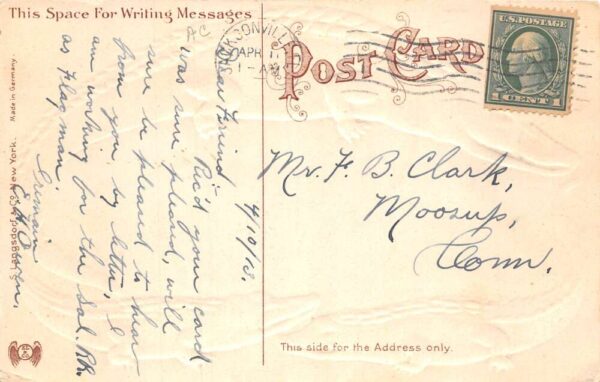 This Space For Writing Messages
AC
POST CARD
U.S. POSTAGE
1 CENT 1
JACKSONVILLE
APR 11
4/10/13.
Dear Friend
Rec'd your card
was sure pleased, will
sure be pleased to hear
from you by letter, I
am working for the Sal. RR.
as Flagman.
Mr. F. B. Clark,
Moosup,
Conn.
This side for the Address only.
S. Langsdorf & Co., New York.
Made in Germany.